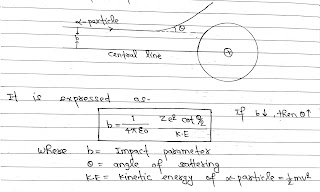 α-particle
θ
b
+
central line
It is expressed as-
b = 1/4πε₀ Ze² cot θ/2 / K.E
If b↓, then θ↑
where b = Impact parameter
θ = angle of scattering
K.E = Kinetic energy of α-particle = ½mv²